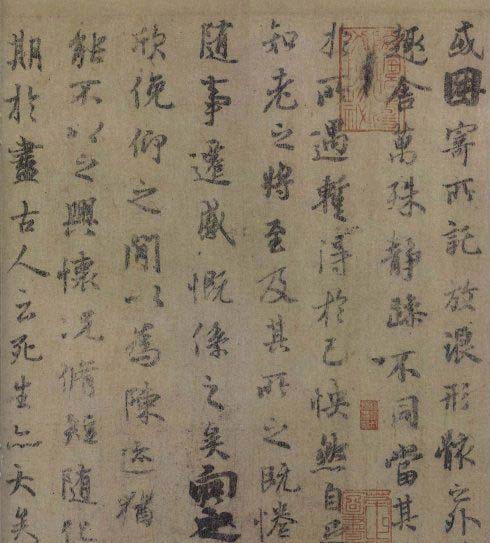 或因寄所託放浪形骸之外
趣舍萬殊靜躁不同當其
於所遇蹔得於己怏然自
知老之將至及其所之既惓
隨事遷感慨係之矣向之
欣俛仰之閒以為陳迹猶
能不以之興懷況脩短隨化
期於盡古人云死生亦大矣